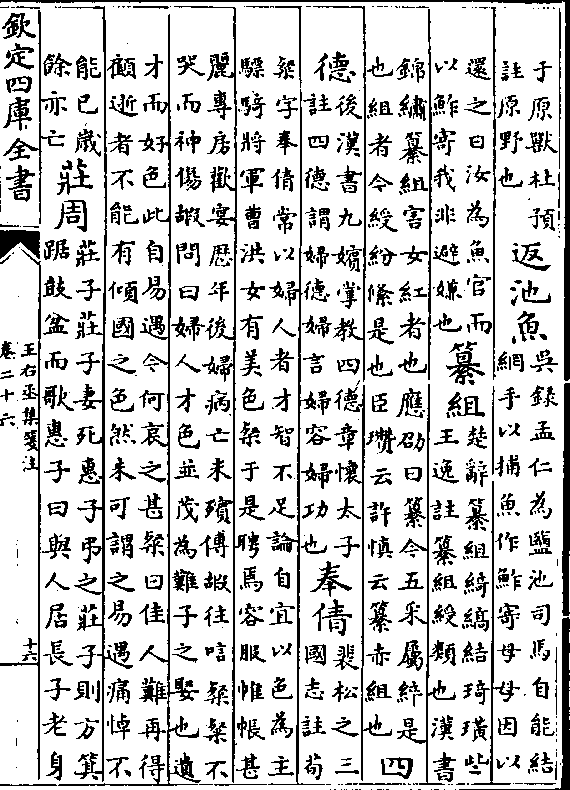 于原獸杜預
註原野也
返池魚
吳録孟仁為鹽池司馬自能結
網手以捕魚作鮓寄母母因以
還之曰汝為魚官而
以鮓寄我非避嫌也
纂組
楚辭纂組綺縞結琦璜些
王逸註纂組綬類也漢書
錦繡纂組害女紅者也應劭曰纂今五采屬綷是
也組者今綬紛絛是也臣瓚云許慎云纂赤組也
四
德
後漢書九嬪掌教四德章懷太子
註四德謂婦德婦言婦容婦功也
奉倩
裴松之三
國志註荀
粲字奉倩常以婦人者才智不足論自宜以色為主
驃騎將軍曹洪女有美色粲于是聘焉容服帷帳甚
麗專房歡宴歴年後婦病亡未殯傅嘏往唁粲粲不
哭而神傷嘏問曰婦人才色並茂為難子之娶也遺
才而好色此自易遇今何哀之甚粲曰佳人難再得
顧逝者不能有傾國之色然未可謂之易遇痛悼不
能已歳
餘亦亡
莊周
莊子莊子妻死惠子弔之莊子則方箕
踞鼓盆而歌惠子曰與人居長子老身
欽定四庫全書
王右丞集箋注
卷二十六
十六